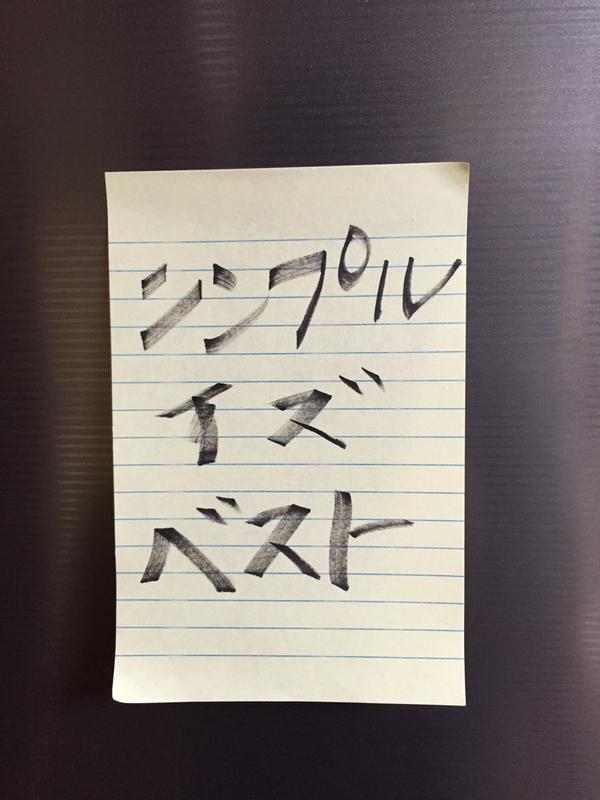 シンプル
イズ
ベスト